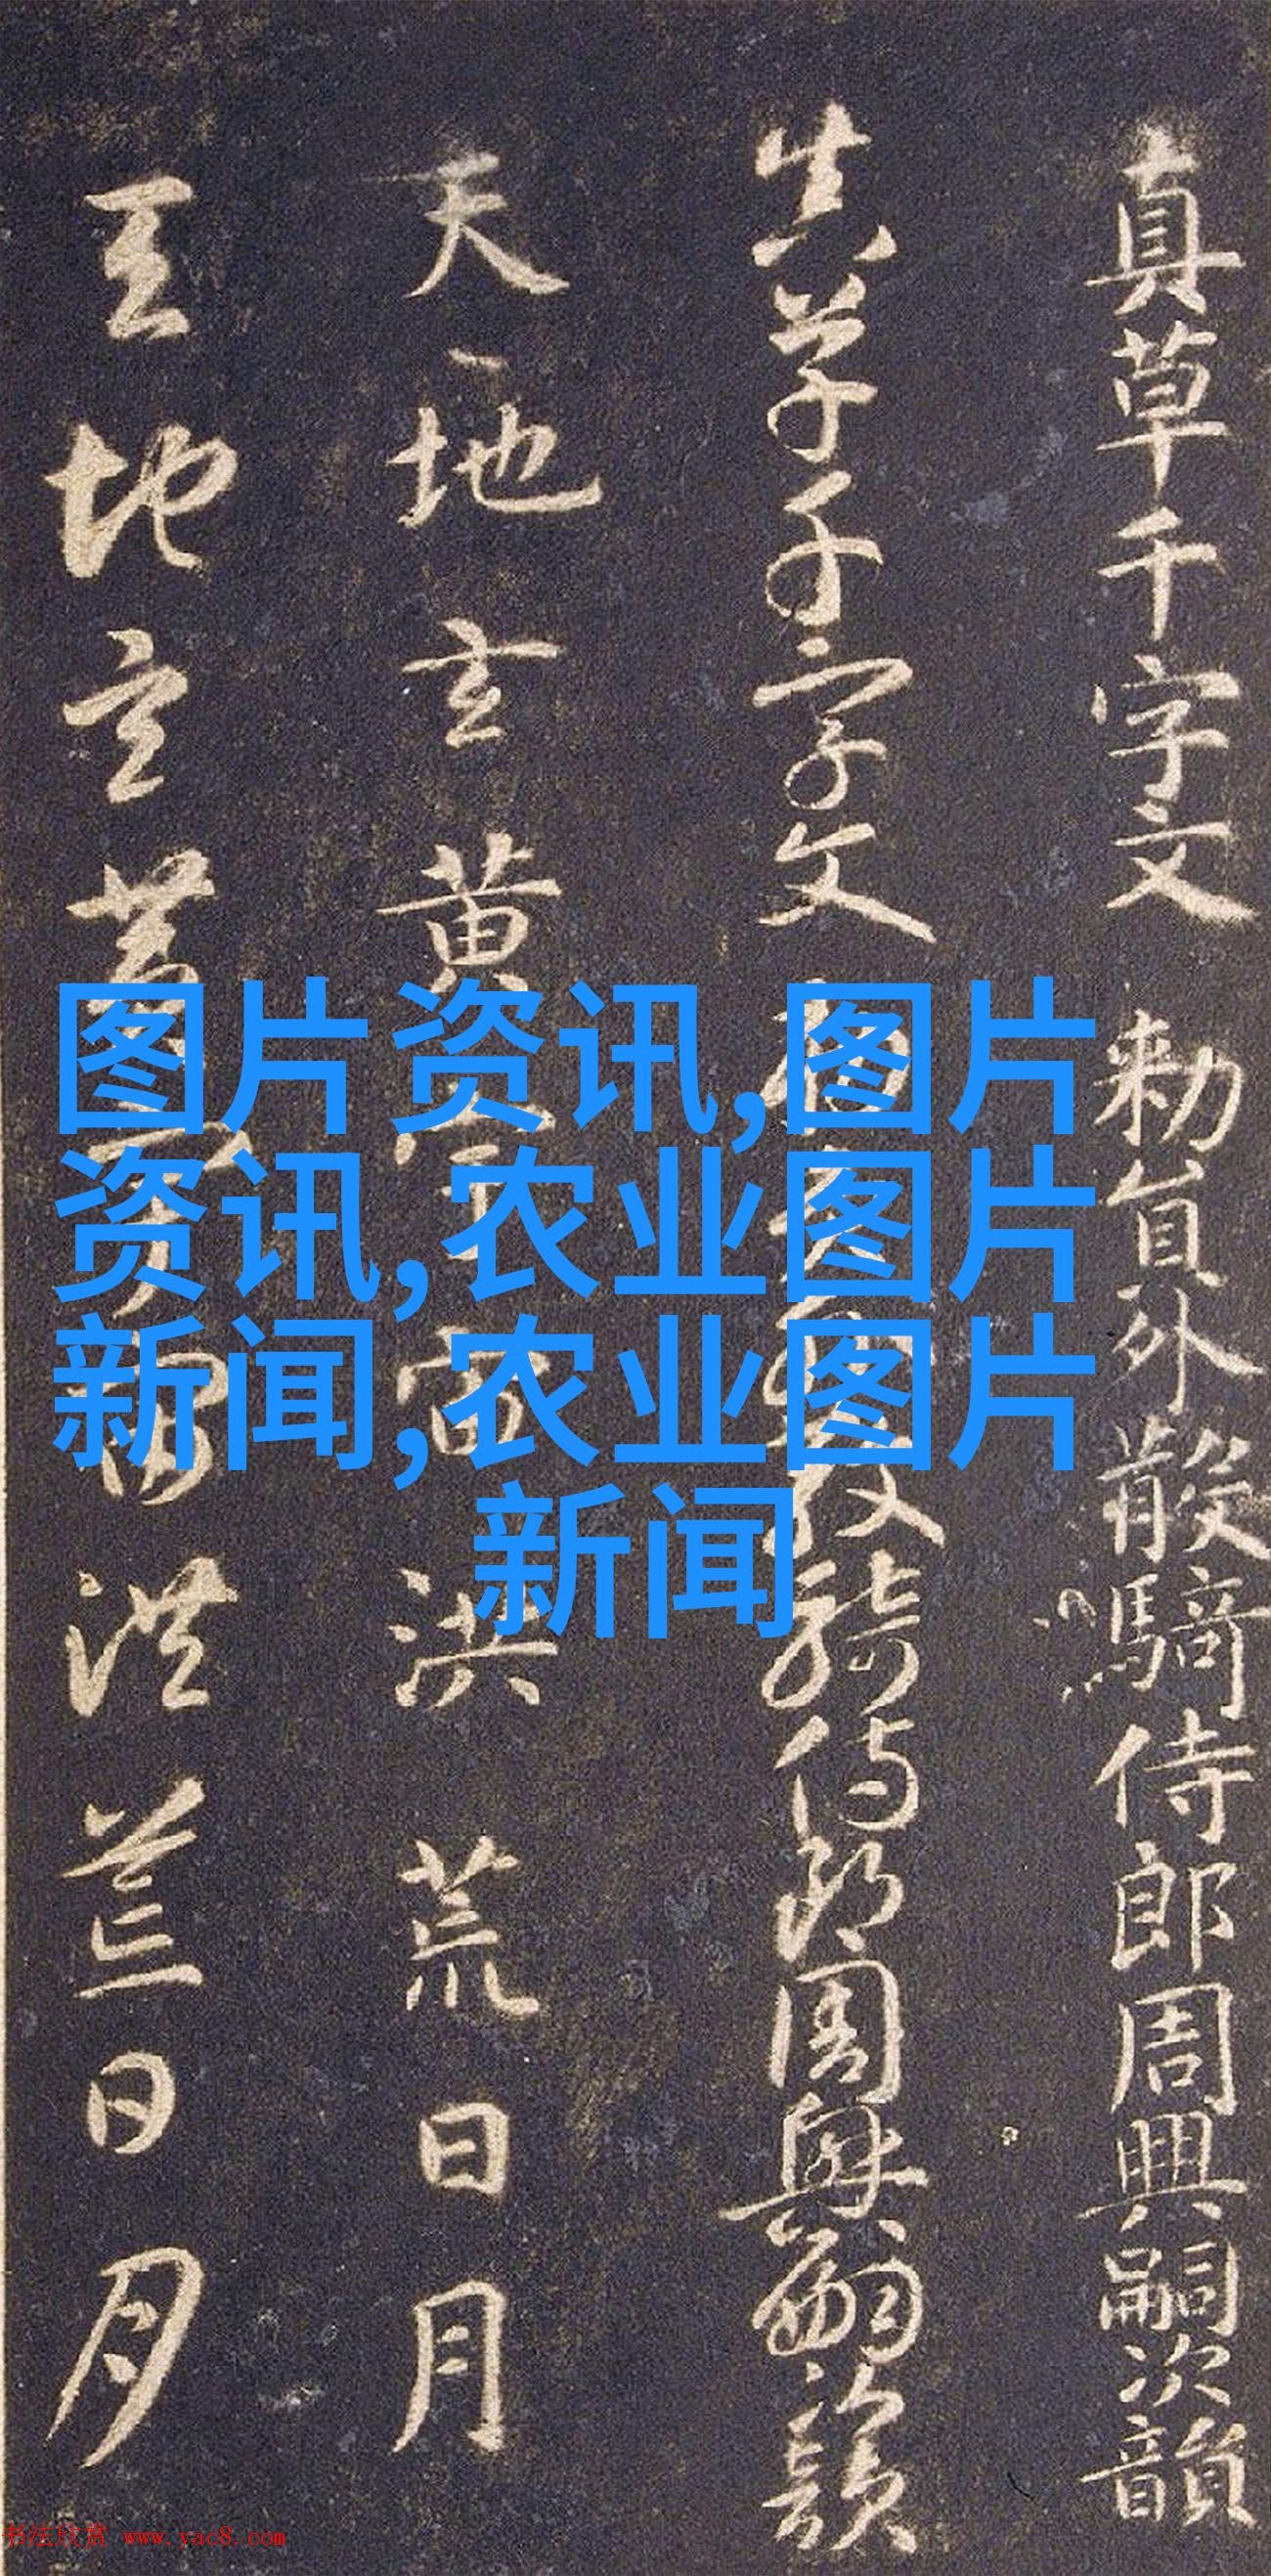 真草千字文勅員外散騎侍郎周興嗣次韻
真草千字文勅員外散騎侍郎周興嗣次韻
天地玄黄宇宙洪荒日月
天地玄黄宇宙洪荒日月
图片资讯,图片
资讯,农业图片
新闻,农业图片
新闻
书法欣赏 www.yac8.com